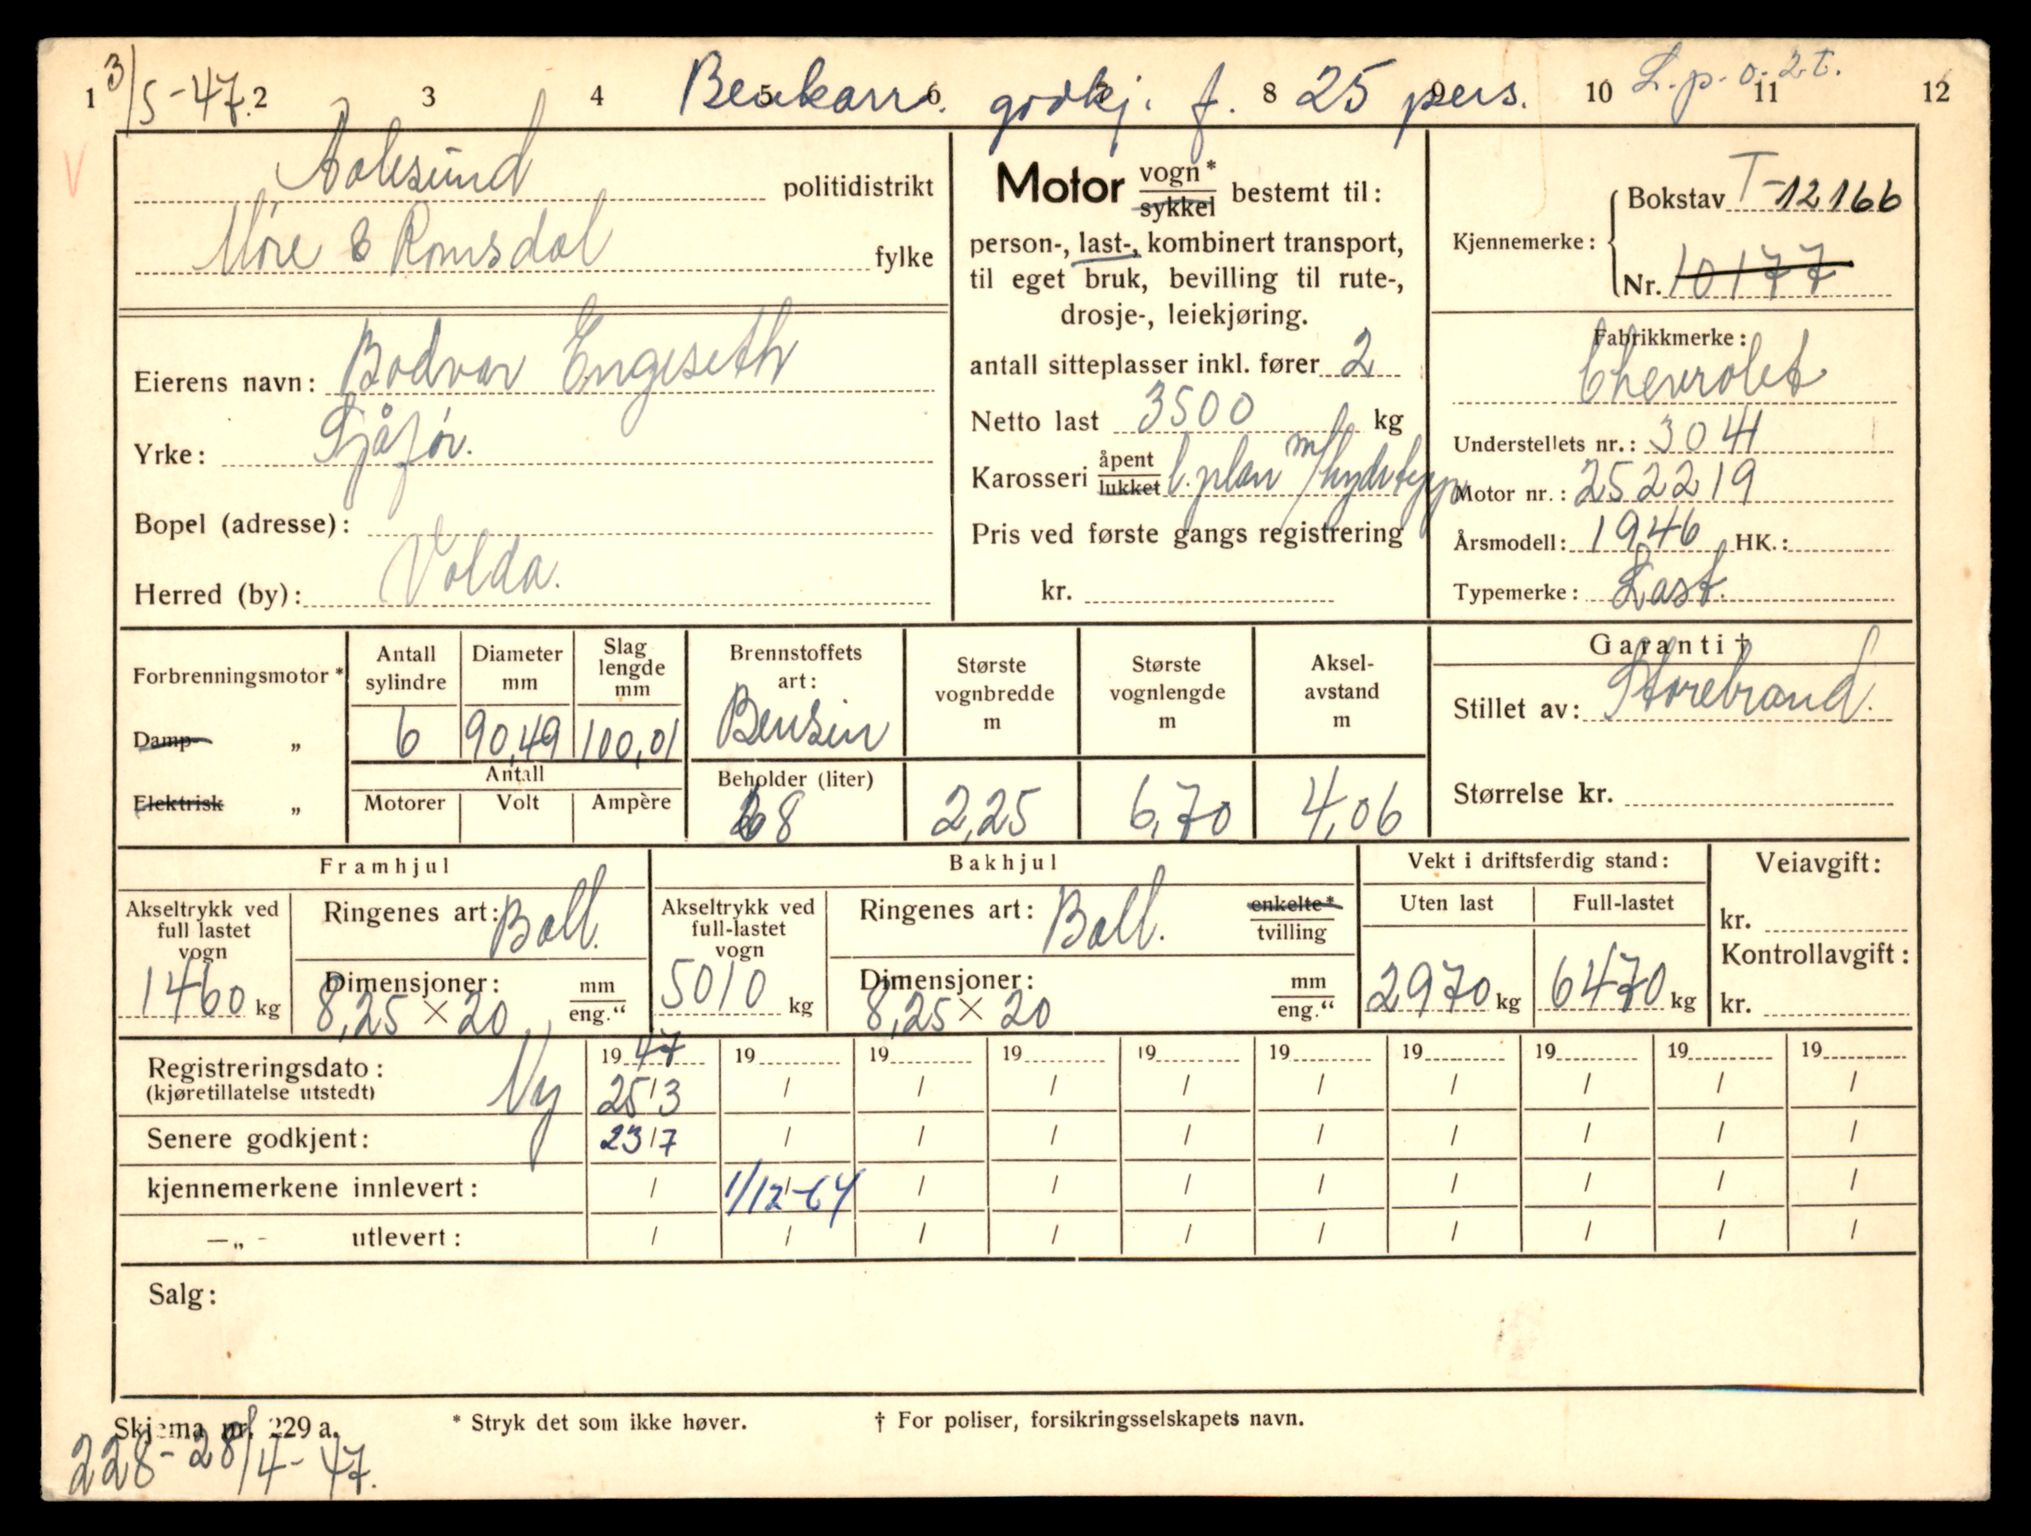 3/5-47. Benkarr. godkj. f. 25 pers. L.p.o. 2 t.
1 2 3 4 5 6 7 8 9 10 11 12
Aalesund politidistrikt
Møre & Romsdal fylke
Eierens navn: Bodvar Engeseth
Yrke: Sjåfør.
Bopel (adresse):
Herred (by): Volda.
Motor vogn* sykkel bestemt til:
person-, last-, kombinert transport,
til eget bruk, bevilling til rute-,
drosje-, leiekjøring.
antall sitteplasser inkl. fører 2
Netto last 3500 kg
Karosseri åpent lukket l.plan m/hydr tipp
Pris ved første gangs registrering
kr.
Kjennemerke: Bokstav T-12166
Nr. 10177
Fabrikkmerke:
Chevrolet
Understellets nr.: 3041
Motor nr.: 252219
Årsmodell: 1946 HK.:
Typemerke: Last.
Forbrenningsmotor *
Damp- „
Elektrisk „
Antall sylindre Diameter mm Slag lengde mm
6 90,49 100,01
Antall
Motorer Volt Ampère
Brennstoffets art:
Bensin
Beholder (liter)
68
Største vognbredde m
2,25
Største vognlengde m
6,70
Aksel-avstand m
4,06
Garanti †
Stillet av: Storebrand.
Størrelse kr.
Framhjul
Akseltrykk ved full lastet vogn
1460 kg
Ringenes art: Ball.
Dimensjoner: mm eng.“
8,25 × 20
Bakhjul
Akseltrykk ved full-lastet vogn
5010 kg
Ringenes art: Ball. enkelte* tvilling
Dimensjoner: mm eng.“
8,25 × 20
Vekt i driftsferdig stand:
Uten last Full-lastet
2970 kg 6470 kg
Veiavgift:
kr.
Kontrollavgift:
kr.
Registreringsdato: Ny 1947 19 19 19 19 19 19 19 19 19
(kjøretillatelse utstedt) 25/3 / / / / / / / / /
Senere godkjent: 23/7 / / / / / / / / /
kjennemerkene innlevert: / 1/12-64 / / / / / / / /
—„- utlevert: / / / / / / / / / /
Salg:
Skjema nr. 229 a. * Stryk det som ikke høver. † For poliser, forsikringsselskapets navn.
228-28/4-47.